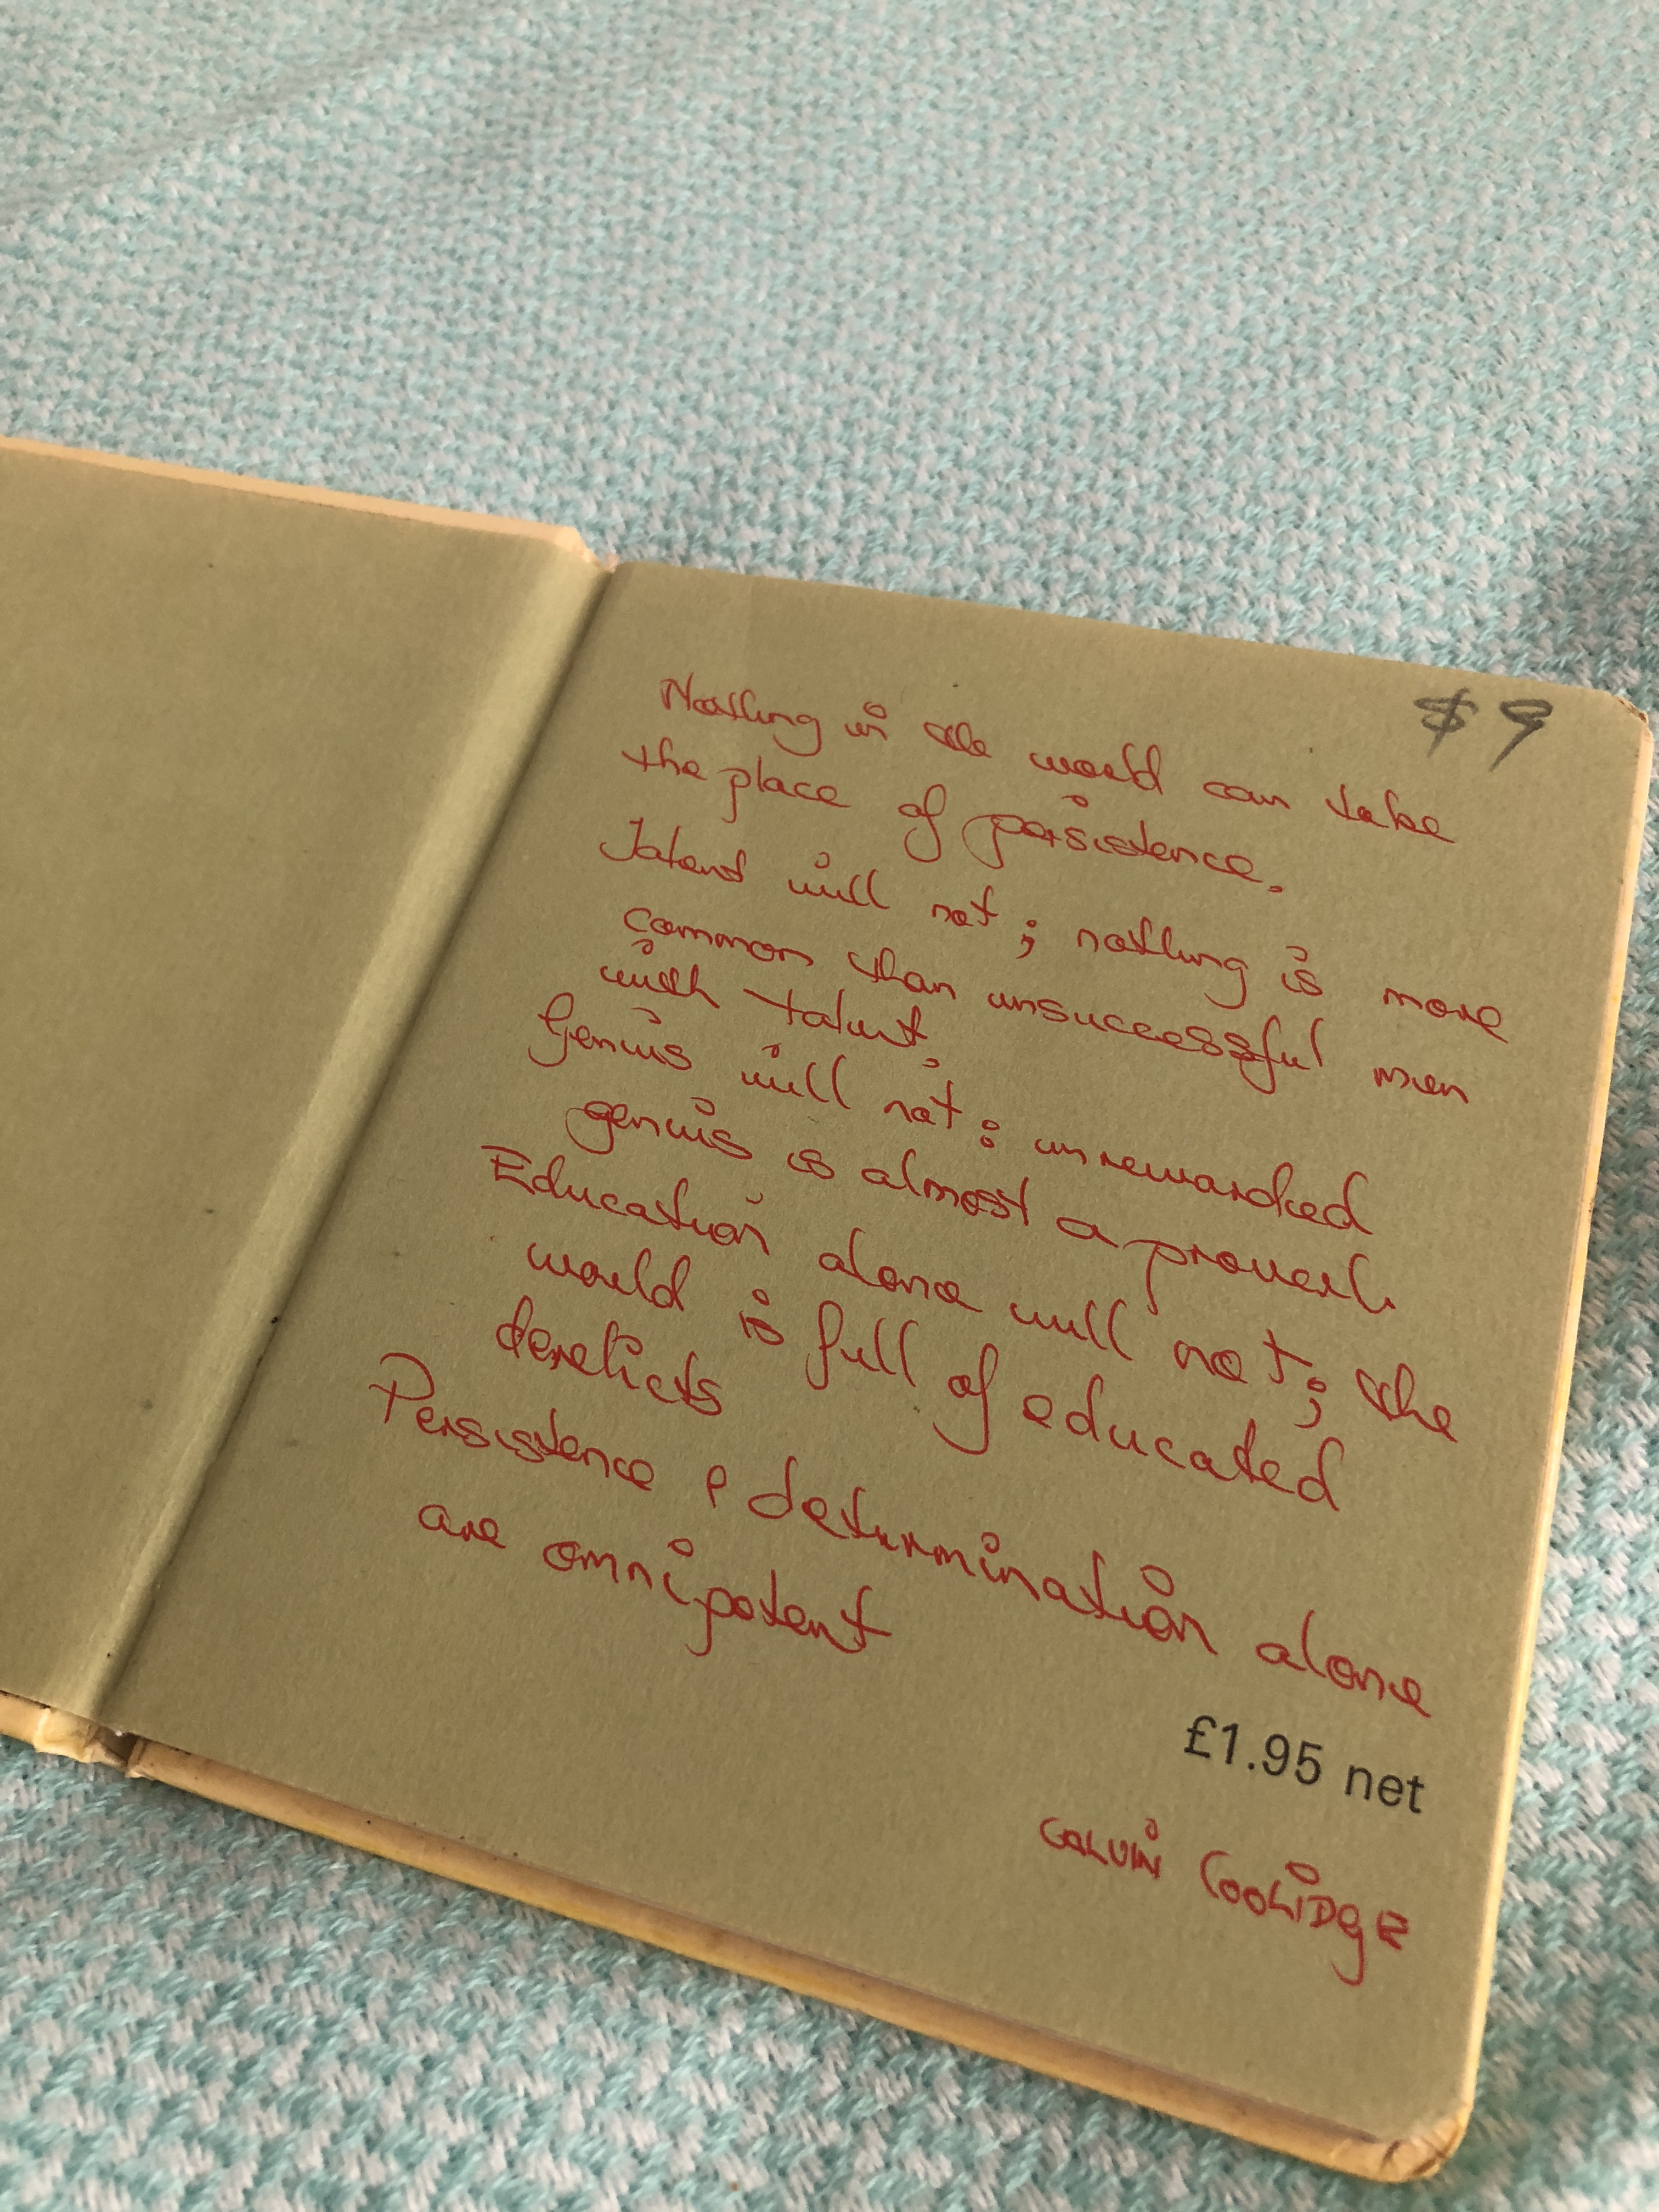 $9
Nothing in the world can take
the place of persistence.
Talent will not ; nothing is more
common than unsuccessful men
with talent.
Genius will not : unrewarded
genius is almost a proverb.
Education alone will not ; the
world is full of educated
derelicts
Persistence & determination alone
are omnipotent
£1.95 net
CALVIN COOLIDGE